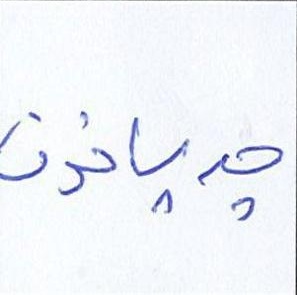 چه پاخون